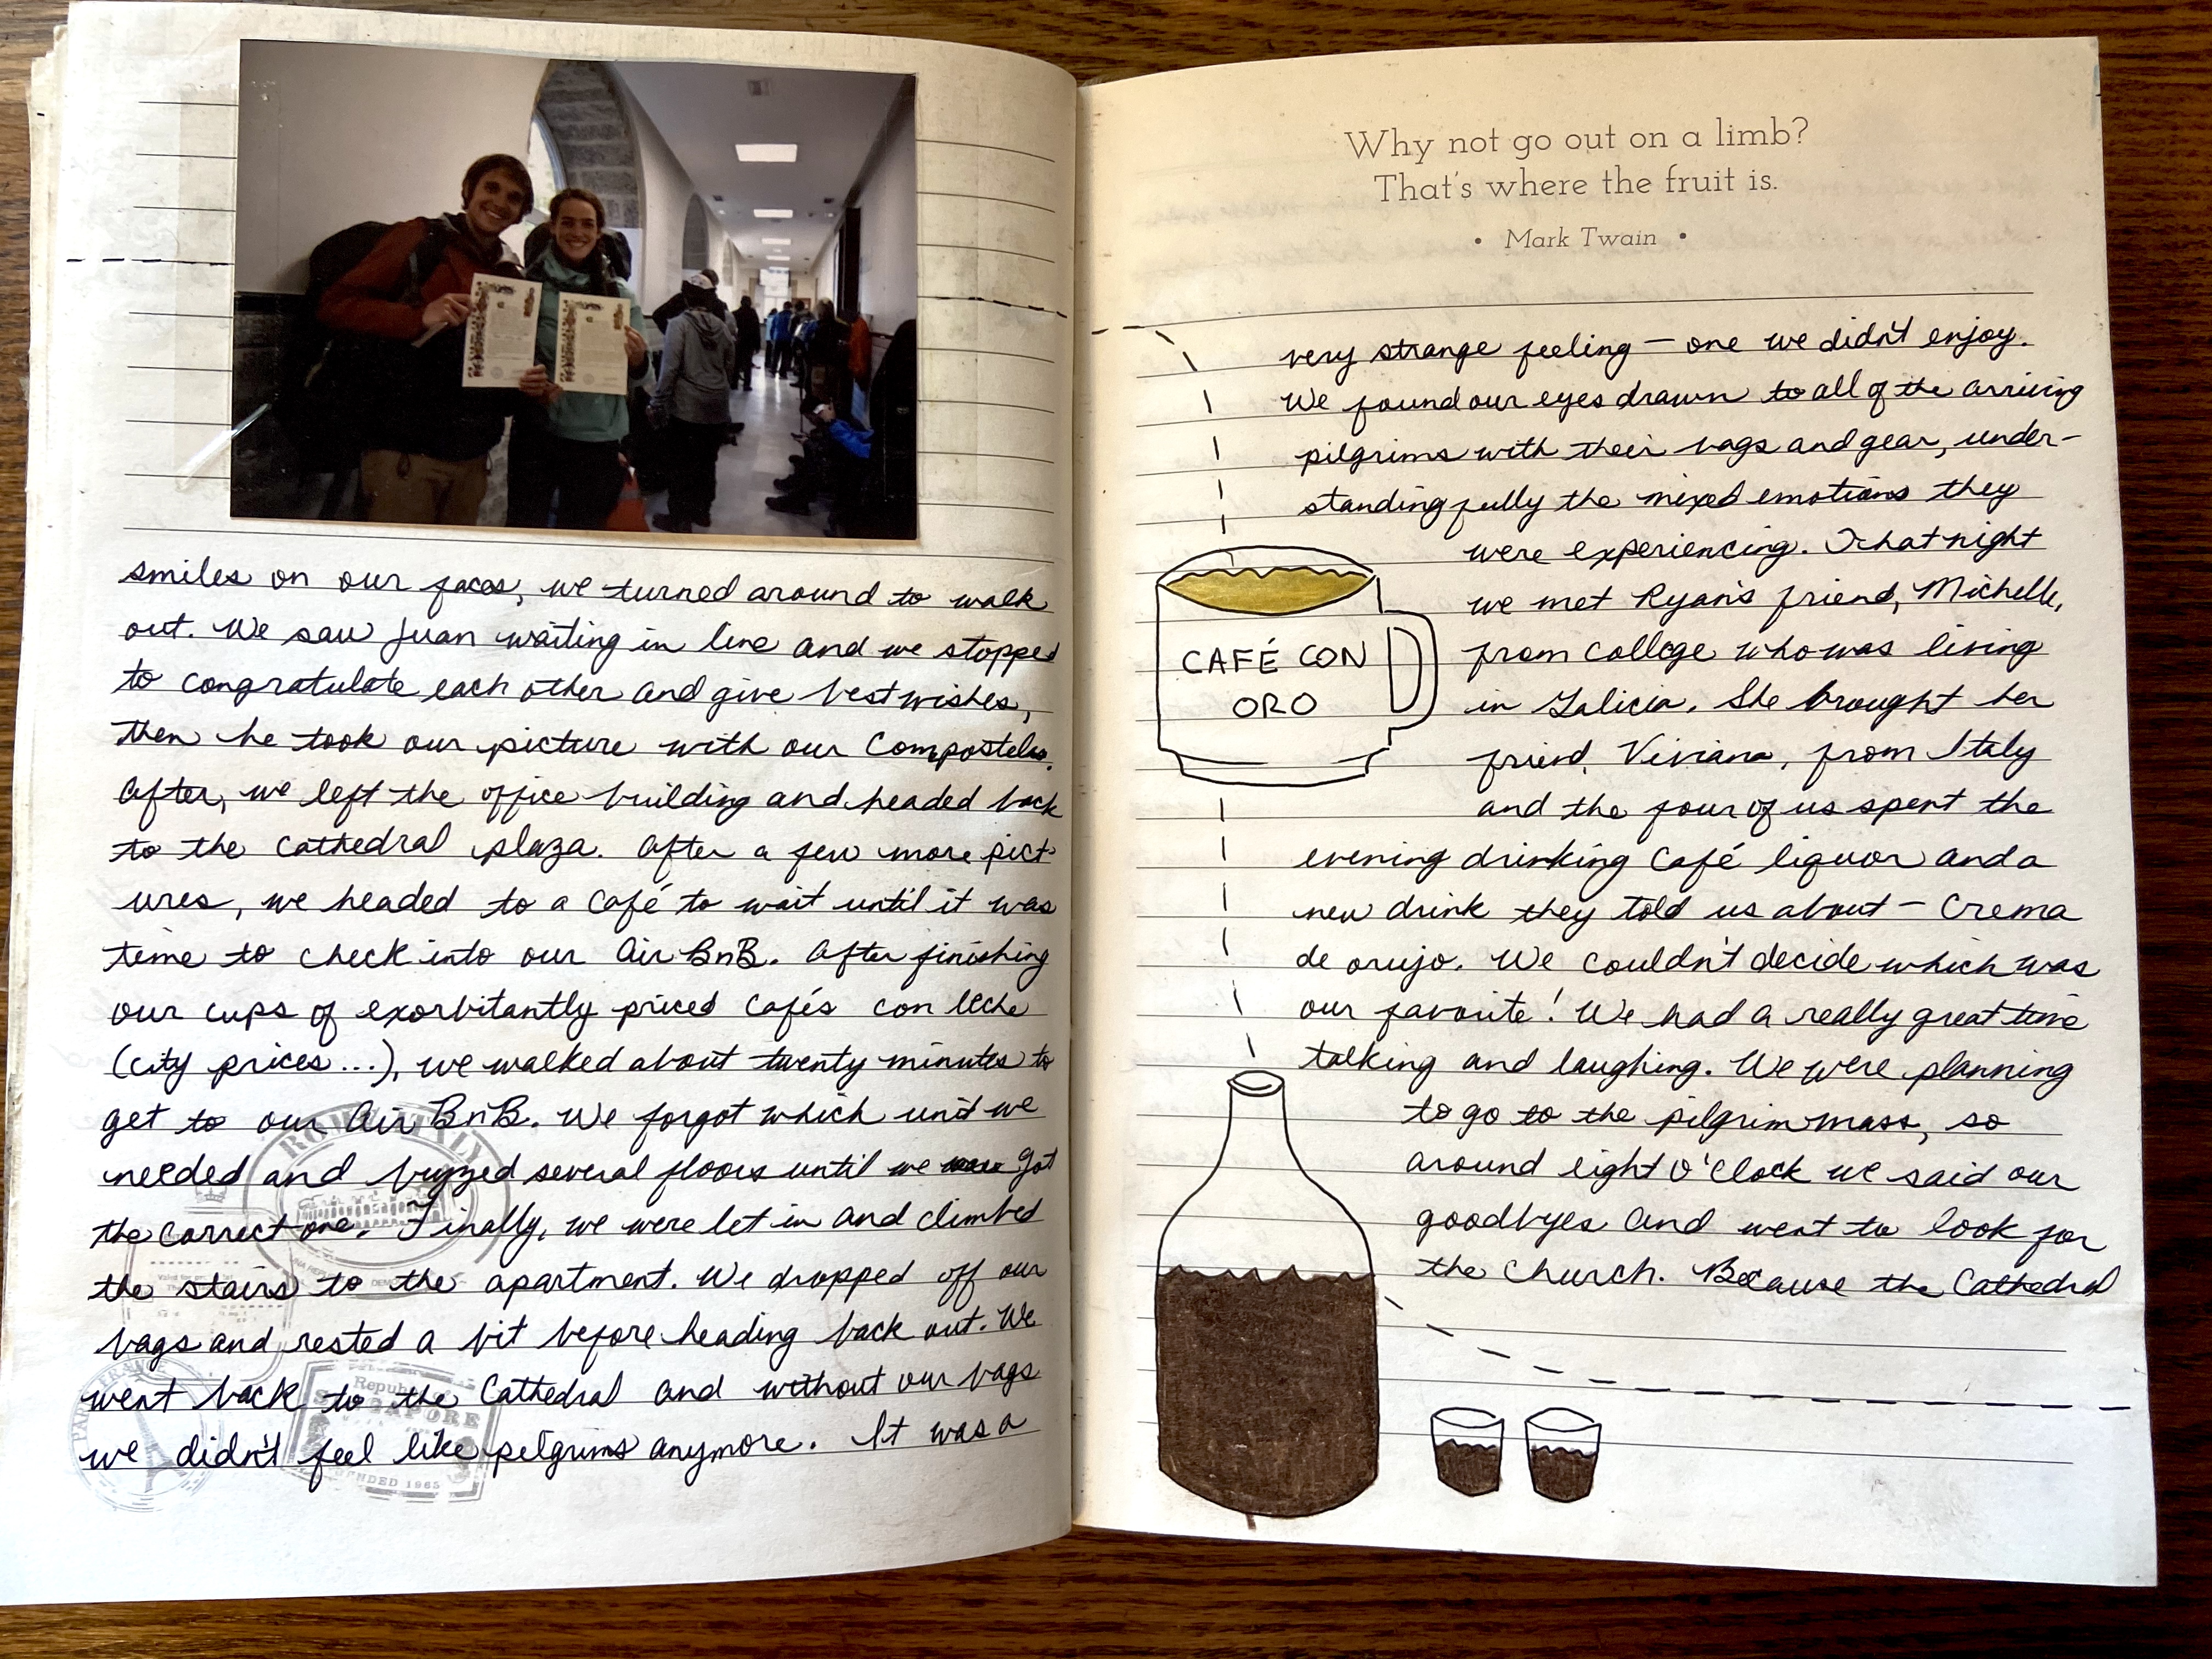 smiles on our faces, we turned around to walk
out. We saw Juan waiting in line and we stopped
to congratulate each other and give best wishes,
then he took our picture with our Compostelas.
After, we left the office building and headed back
to the Cathedral plaza. After a few more pict-
ures, we headed to a café to wait until it was
time to check into our AirBnB. After finishing
our cups of exorbitantly priced cafés con leche
(city prices...), we walked about twenty minutes to
get to our AirBnB. We forgot which unit we
needed and buzzed several floors until we got
the correct one. Finally, we were let in and climbed
the stairs to the apartment. We dropped off our
bags and rested a bit before heading back out. We
went back to the Cathedral and without our bags
we didn't feel like pilgrims anymore. It was a
Republic
SINGAPORE
FOUNDED 1965
Why not go out on a limb?
That's where the fruit is.
• Mark Twain •
very strange feeling — one we didn't enjoy.
We found our eyes drawn to all of the arriving
pilgrims with their bags and gear, under-
standing fully the mixed emotions they
were experiencing. That night
we met Ryan's friend, Michelle,
from college who was living
in Galicia. She brought her
friend, Viviana, from Italy
and the four of us spent the
evening drinking café liquor and a
new drink they told us about — Crema
de orujo. We couldn't decide which was
our favorite! We had a really great time
talking and laughing. We were planning
to go to the pilgrim mass, so
around eight o'clock we said our
goodbyes and went to look for
the church. Because the Cathedral
CAFÉ CON
ORO